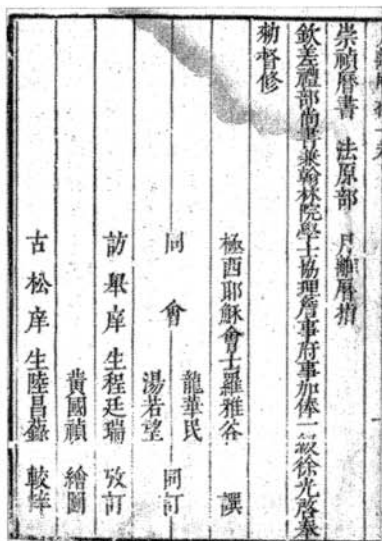 崇禎曆書 法原部 月離曆指
欽差禮部尚書兼翰林院學士協理詹事府事加俸一級徐光啓奉
勅督修
極西耶穌會士羅雅谷 譔
龍華民
同會 同訂
湯若望
訪舉庠生程廷瑞 攷訂
黃國禎 繪圖
古松庠生陸昌 較